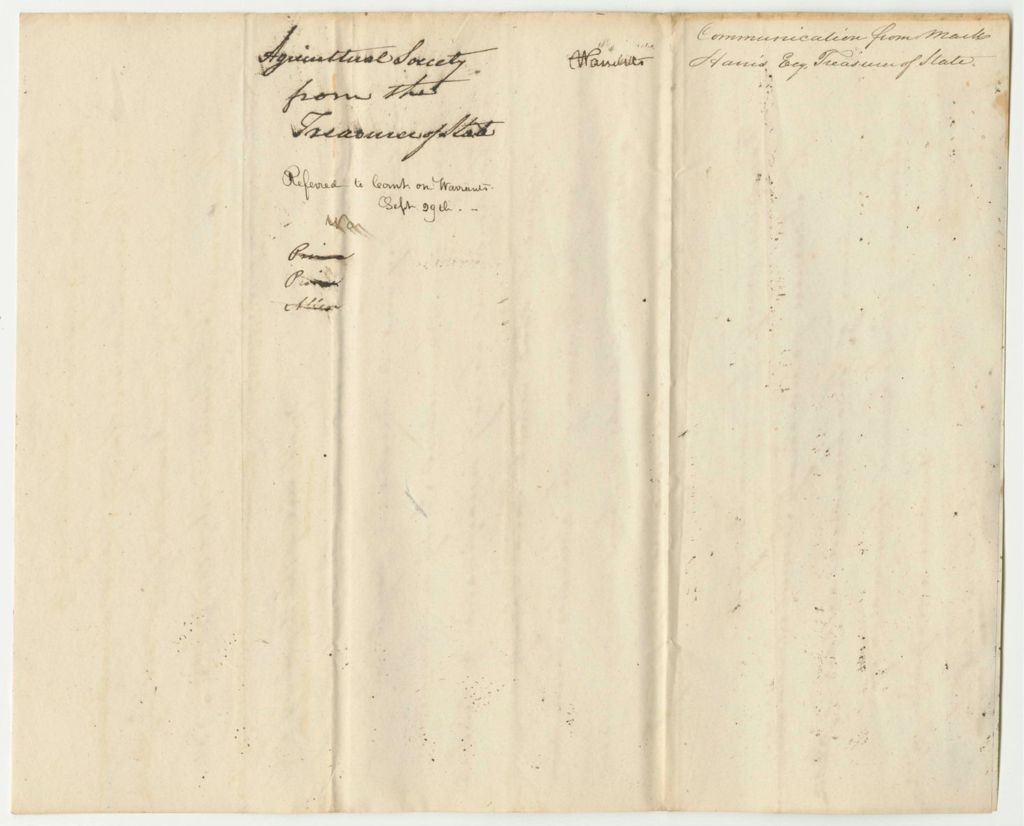 Agricultural Society
from the
Treasurer of State
Referred to Comt. on Warrants.
Sept. 29th. -
War
Communication from Mark
Harris Esq. Treasurer of State.